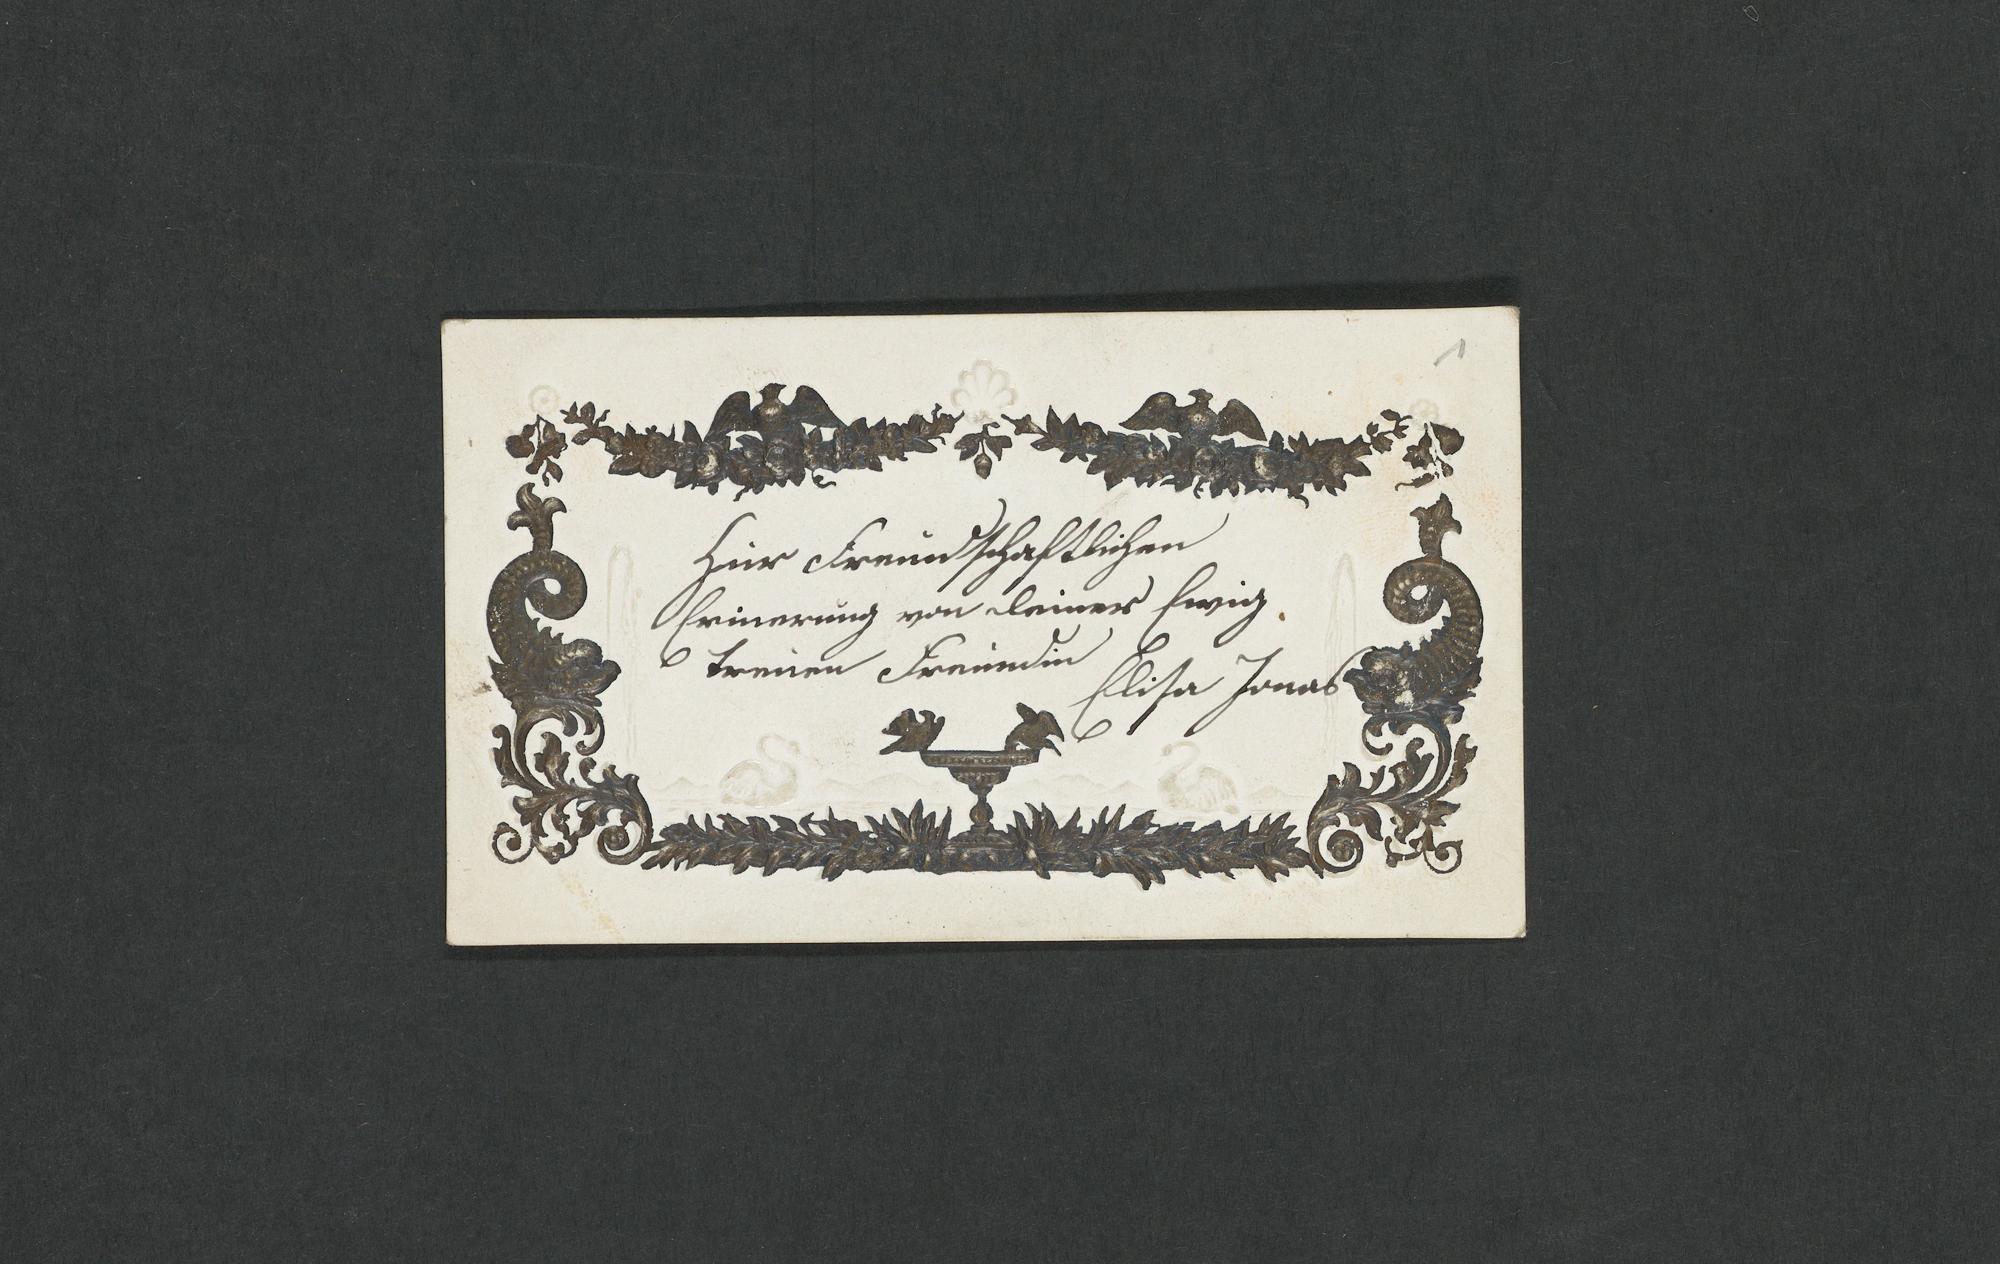 1
Zur Freundschaftlichen
Erinerung von deiner Ewig
treuen Freundin
Elisa Jonas